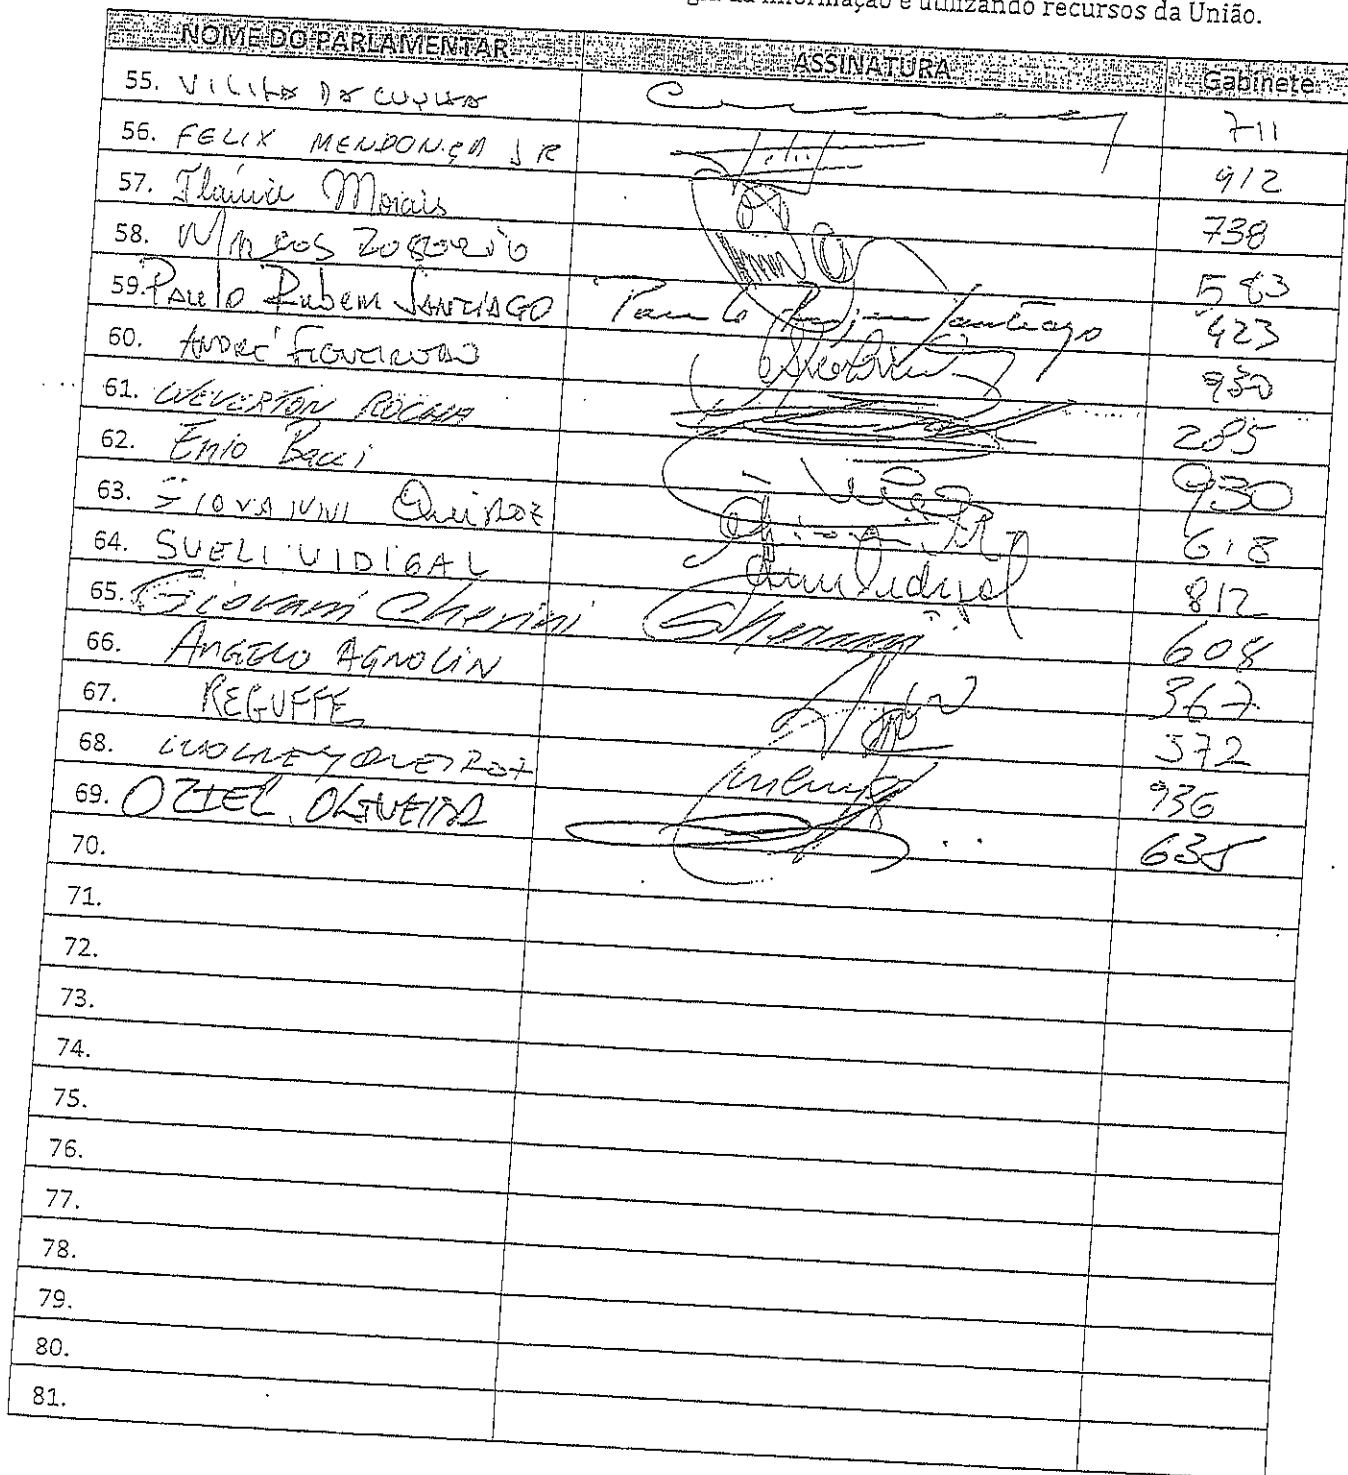 da informação e utilizando recursos da União.
NOME DO PARLAMENTAR ASSINATURA Gabinete
55. 711
56. FELIX MENDONÇA JR 912
57. Flávia Morais 738
58. 583
59. Paulo Rubem SANTIAGO Paulo Santiago 423
60. ANDRÉ FIGUEIREDO 950
61. WEVERTON ROCHA 285
62. Enio Bacci 930
63. GIOVANNI Queiroz 618
64. SUELI VIDIGAL 812
65. Giovani Cherini Cherini 608
66. ANGELO AGNOLIN 367
67. REGUFFE 572
68. 936
69. OZIEL OLIVEIRA 635
70.
71.
72.
73.
74.
75.
76.
77.
78.
79.
80.
81.